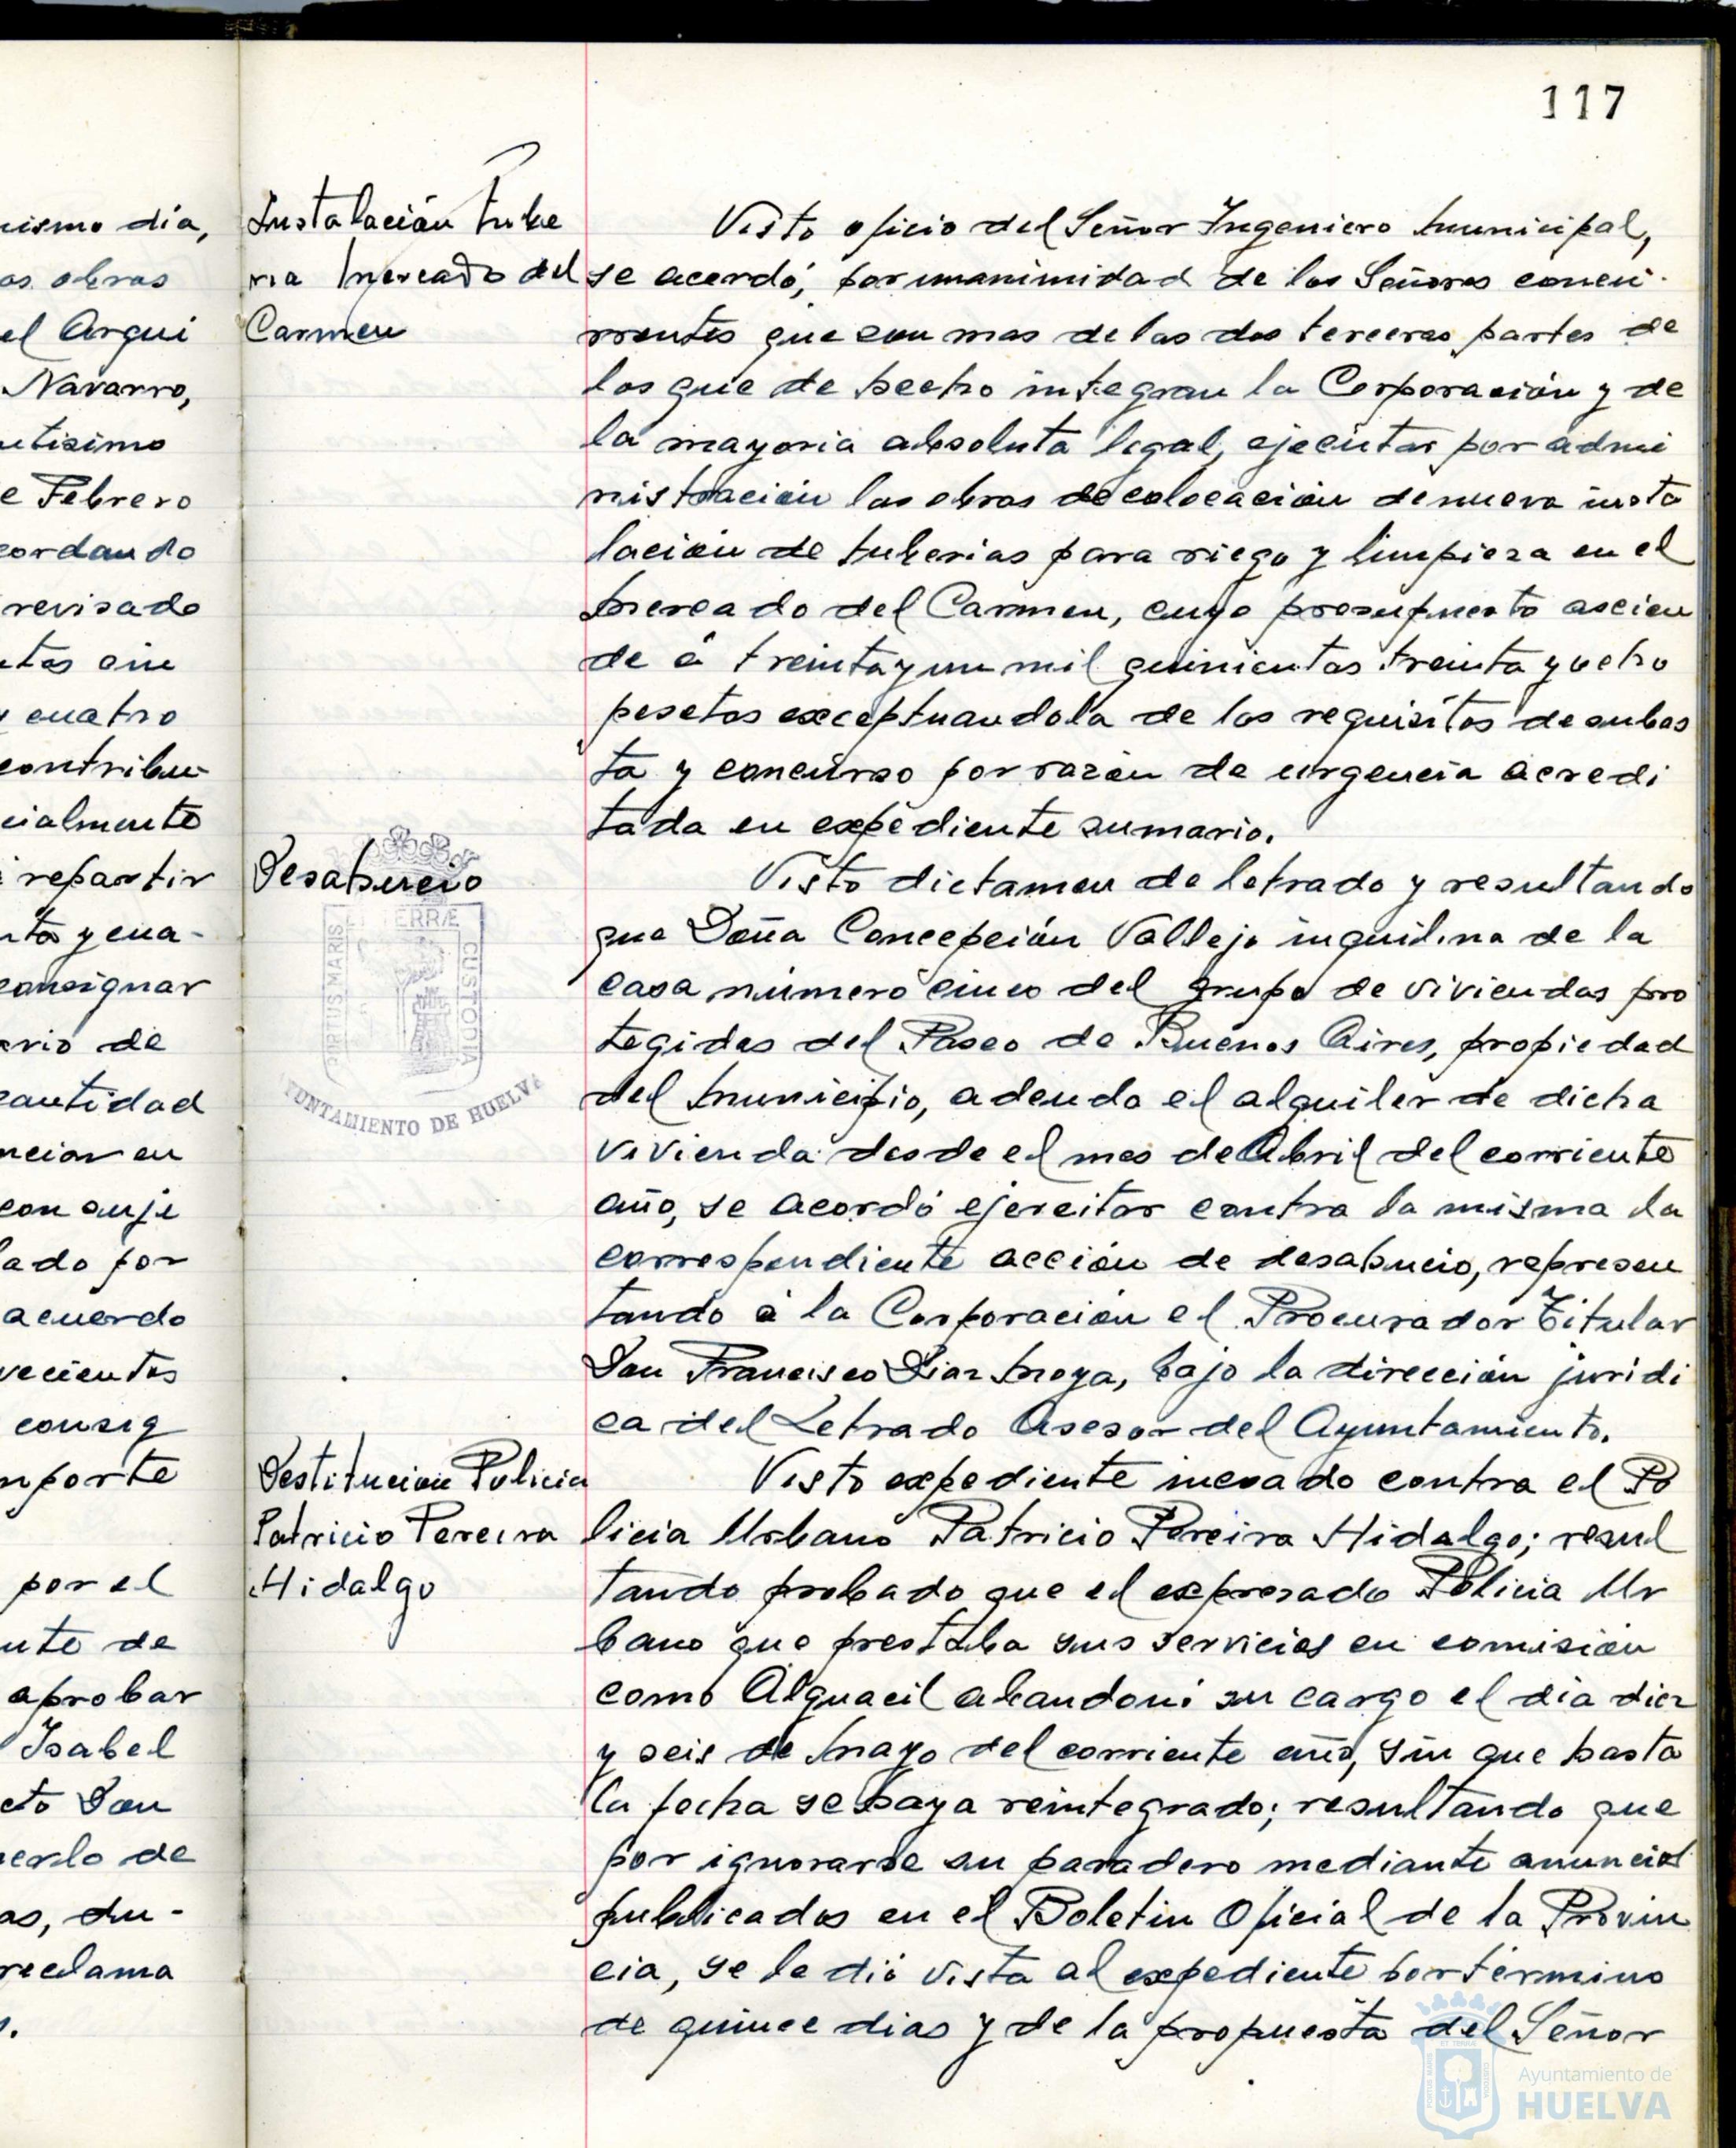 117
Instalación tube
ria Mercado del
Carmen
Visto oficio del Señor Ingeniero Municipal,
se acordó, por unanimidad de los Señores concu-
rrentes que son mas de las dos terceras partes de
los que de hecho integran la Corporación y de
la mayoria absoluta legal, ejecutar por admi
nistración las obras de colocación de nueva insta
lación de tuberias para riego y limpieza en el
Mercado del Carmen, cuyo presupuesto ascien
de á treinta y un mil quinientas treinta y ocho
pesetas exceptuandola de los requisitos de subas
ta y concurso por razón de urgencia acredi
tada en expediente sumario.
Desahucio
Visto dictamen de letrado y resultando
que Doña Concepción Vallejo inquilina de la
casa número cinco del grupo de viviendas pro
tegidas del Paseo de Buenos Aires, propiedad
del Municipio, adeuda el alquiler de dicha
vivienda desde el mes de Abril del corriente
año, se acordó ejercitar contra la misma la
correspondiente acción de desahucio, represen
tando á la Corporación el Procurador Titular
Don Francisco Diaz Moya, bajo la dirección juridi
ca del Letrado Asesor del Ayuntamiento.
Destitucion Policia
Patricio Pereira
Hidalgo
Visto expediente incoado contra el Po
licia Urbano Patricio Pereira Hidalgo; resul
tando probado que el expresado Policia Ur
bano que prestaba sus servicios en comisión
como Alguacil abandonó su cargo el día diez
y seis de Mayo del corriente año, sin que hasta
la fecha se haya reintegrado; resultando que
por ignorarse su paradero mediante anuncios
publicados en el Boletin Oficial de la Provin
cia, se le dió vista al expediente por término
de quince dias y de la propuesta del Señor
PORTUS MARIS
ET TERRÆ
CUSTODIA
YUNTAMIENTO DE HUELVA
Ayuntamiento de
HUELVA
mismo día,
as obras
el Arqui
Navarro,
ntisimo
e Febrero
cordando
revisado
y cuatro
contribu-
cialmente
repartir
nta y cua-
consignar
ario de
cantidad
lado por
acuerdo
vecientas
consig
mporte
por el
nte de
aprobar
Isabel
cto Don
uerlo de
as, du-
reclama